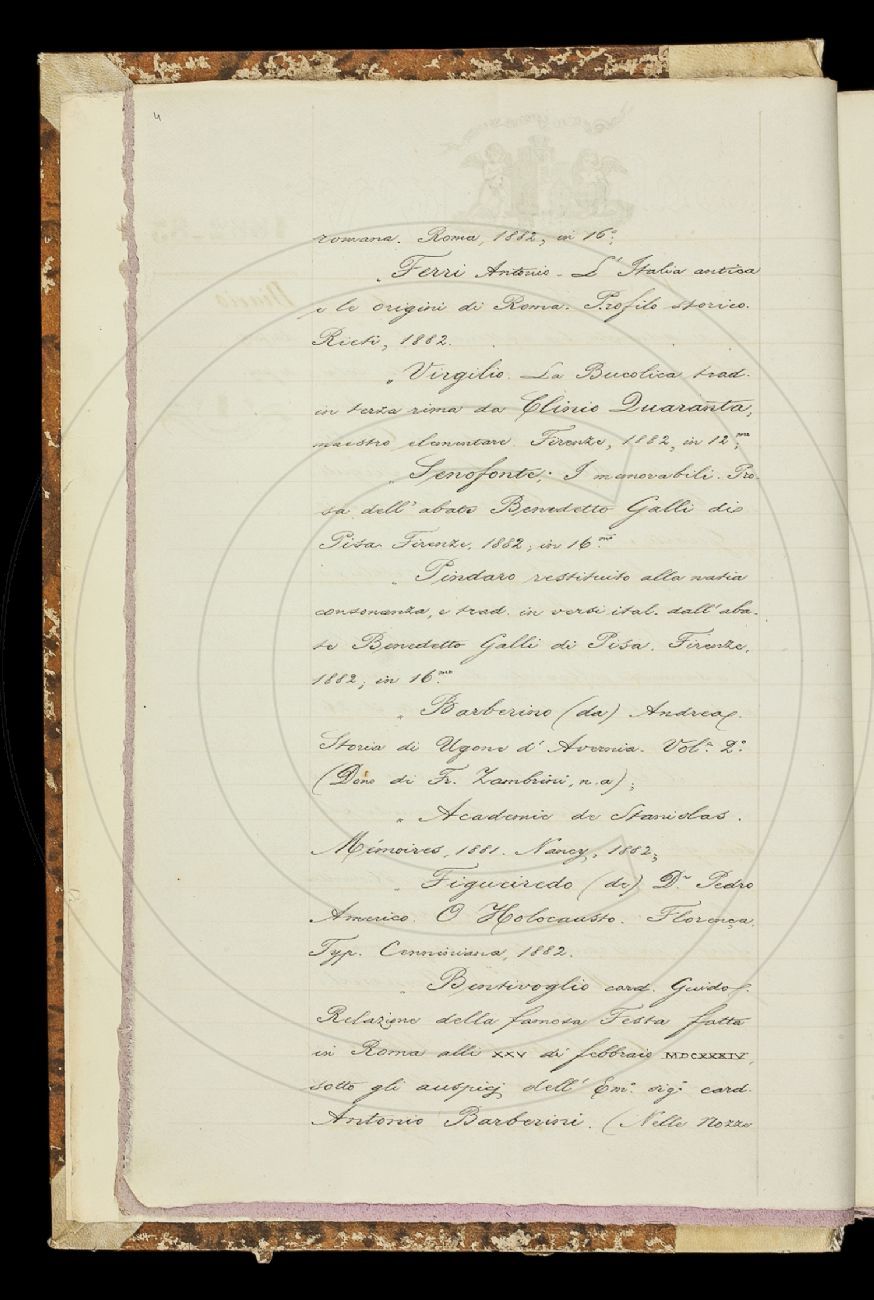 4
romana. Roma, 1882, in 16°;
„ Ferri Antonio - L'Italia antica
e le origini di Roma. Profilo storico.
Rieti, 1882.
„ Virgilio. La Bucolica trad.
in terza rima da Clinio Quaranta,
maestro elementare. Firenze, 1882, in 12mo;
„ Senofonte; I memorabili. Pro-
sa dell'abate Benedetto Galli di
Pisa. Firenze, 1882, in 16mo
„ Pindaro restituito alla natia
consonanza, e trad. in versi ital. dall'aba-
te Benedetto Galli di Pisa. Firenze,
1882, in 16mo
„ Barberino (da) Andrea.
Storia di Ugone d'Avernia. Vole 2°
(Dono di Fr. Zambrini, n. a);
„ Academie de Stanislas.
Mémoires, 1881. Nancy, 1882;
„ Figueiredo (de) Dr Pedro
Americo. O Holocausto. Florença.
Typ. Cenniniana, 1882.
„ Bentivoglio card. Guido.
Relazione della famosa Festa fatta
in Roma alli XXV di febbraio MDCXXXIV,
sotto gli auspicj dell'Emo sigr card.
Antonio Barberini. (Nelle Nozze